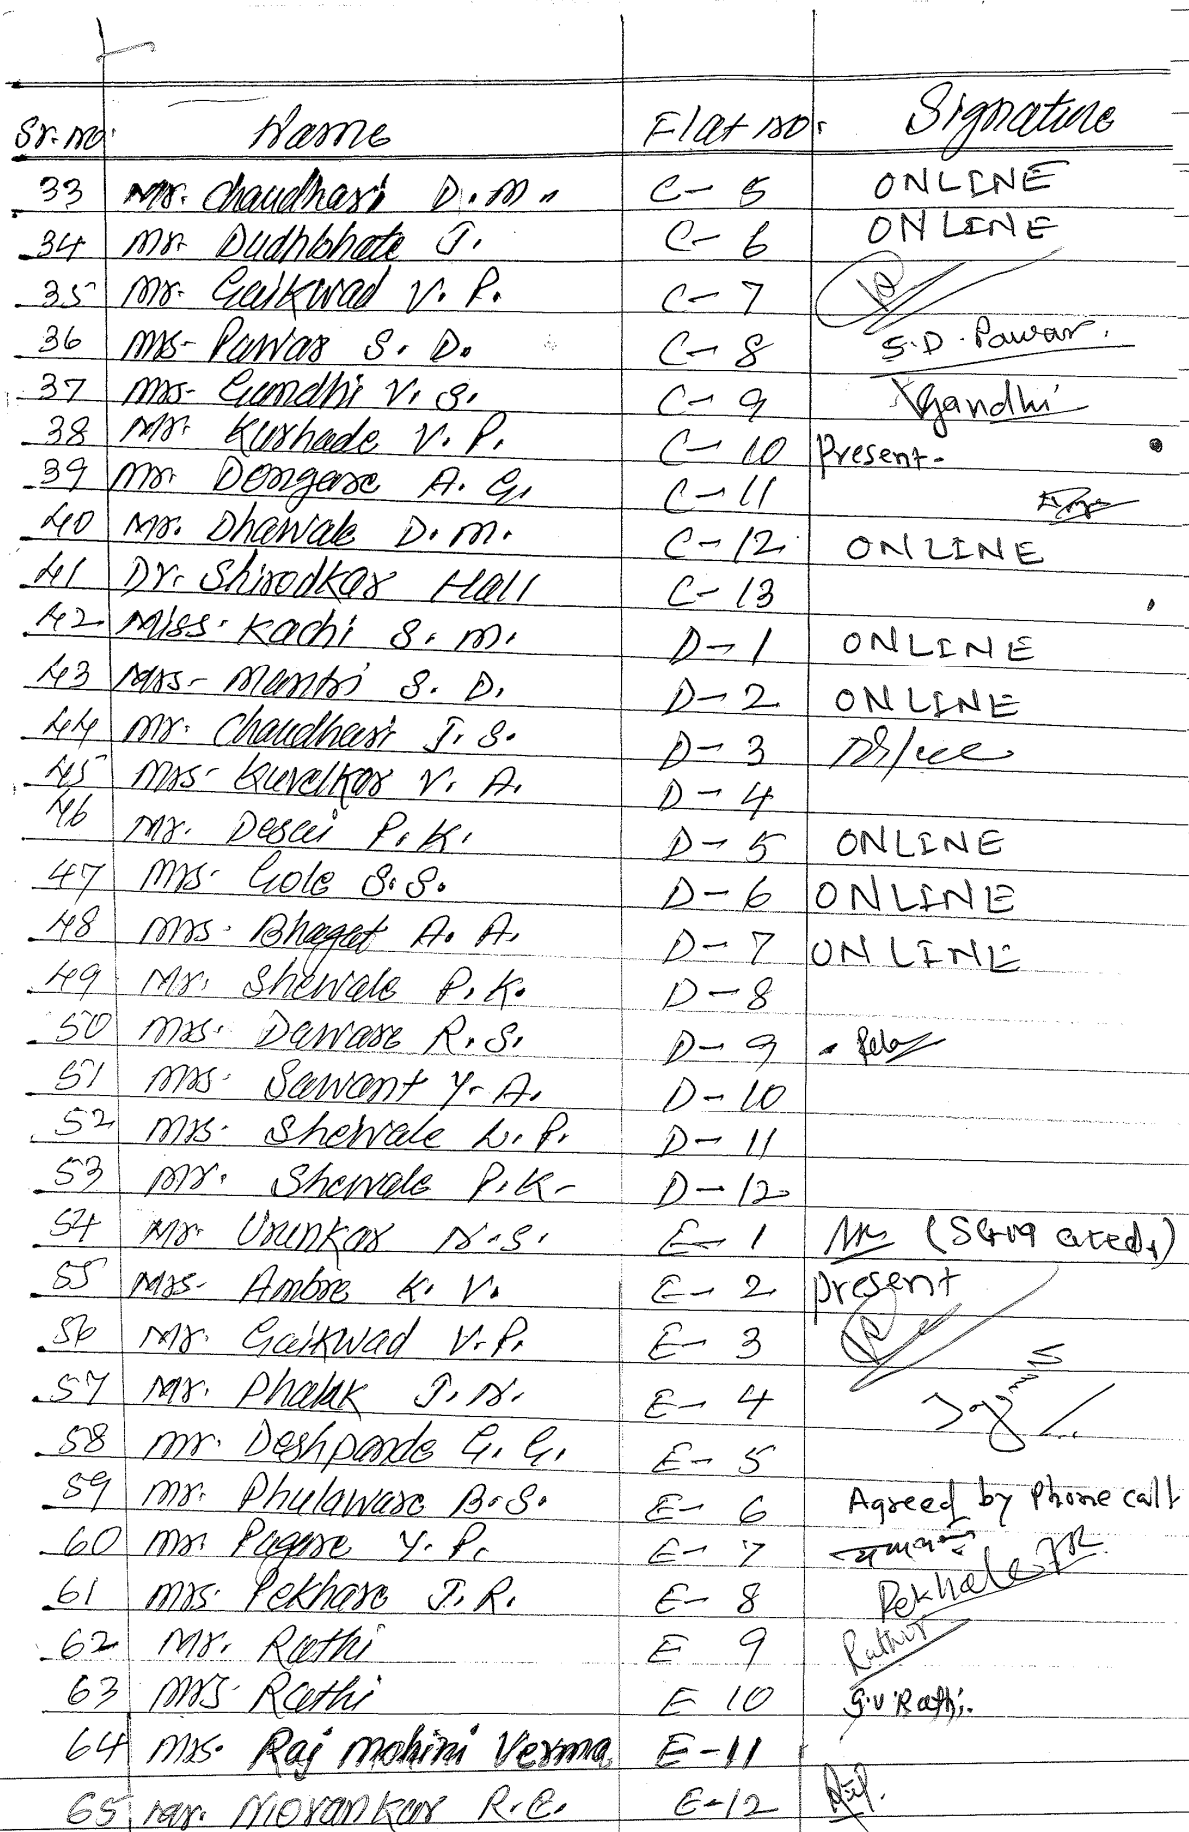 Sr. no. Name Flat no. Signature
33 Mr. Chaudhari D. M. C- 5 ONLINE
34 Mr. Dudhbhate J. C- 6 ONLINE
35 Mr. Gaikwad V. P. C- 7
36 Ms- Pawar S. D. C- 8 S.D. Pawar.
37 Mrs- Gandhi V. S. C- 9 Gandhi
38 Mr. Kurhade V. P. C- 10 Present-
39 Mr. Dongare A. G. C- 11
40 Mr. Dhawale D. M. C- 12 ONLINE
41 Dr. Shirodkar Hall C- 13
42 Miss. Kachi S. M. D- 1 ONLINE
43 Mrs- Mantri S. D. D- 2 ONLINE
44 Mr. Chaudhari J. S. D- 3
45 Mrs- Kuvelkar V. A. D- 4
46 Mr. Desai P. K. D- 5 ONLINE
47 Mrs- Gole S. S. D- 6 ONLINE
48 Mrs. Bhagat A. A. D- 7 ONLINE
49 Mr. Shewale P. K. D- 8
50 Mrs. Daware R. S. D- 9
51 Mrs. Sawant Y. A. D- 10
52 Mrs. Shewale L. P. D- 11
53 Mr. Shewale P. K- D- 12
54 Mr. Urunkar N. S. E- 1
55 Mrs- Ambre K. V. E- 2 present
56 Mr. Gaikwad V. P. E- 3
57 Mr. Phalak J. N. E- 4
58 Mr. Deshpande G. G. E- 5
59 Mr. Phulaware B. S. E- 6 Agreed by Phone call
60 Mr. Pagare Y. P. E- 7
61 Mrs. Pekhare J. R. E- 8
62 Mr. Rathi E 9
63 Mrs Rathi E 10 G.V Rathi.
64 Mrs. Raj Mohini Verma E-11
65 Mr. Morankar R. C. E-12